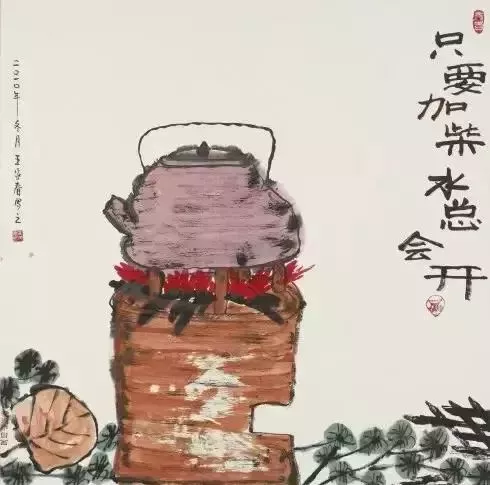 只要加柴水总会开
二〇一〇年冬月王家春写之